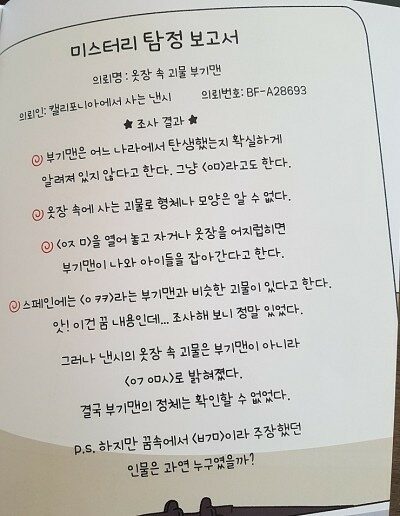 미스터리 탐정 보고서
의뢰명 : 옷장 속 괴물 부기맨
의뢰인: 캘리포니아에서 사는 낸시 의뢰번호: BF-A28693
★ 조사 결과 ★
부기맨은 어느 나라에서 탄생했는지 확실하게
알려져 있지 않다고 한다. 그냥 <ㅇㅁ>라고도 한다.
옷장 속에 사는 괴물로 형체나 모양은 알 수 없다.
<ㅇㅈ ㅁ>을 열어 놓고 자거나 옷장을 어지럽히면
부기맨이 나와 아이들을 잡아간다고 한다.
스페인에는 <ㅇ ㅋㅋ>라는 부기맨과 비슷한 괴물이 있다고 한다.
앗! 이건 꿈 내용인데... 조사해 보니 정말 있었다.
그러나 낸시의 옷장 속 괴물은 부기맨이 아니라
<ㅇㄱ ㅇㅁㅅ>로 밝혀졌다.
결국 부기맨의 정체는 확인할 수 없었다.
P.S. 하지만 꿈속에서 <ㅂㄱㅁ>이라 주장했던
인물은 과연 누구였을까?